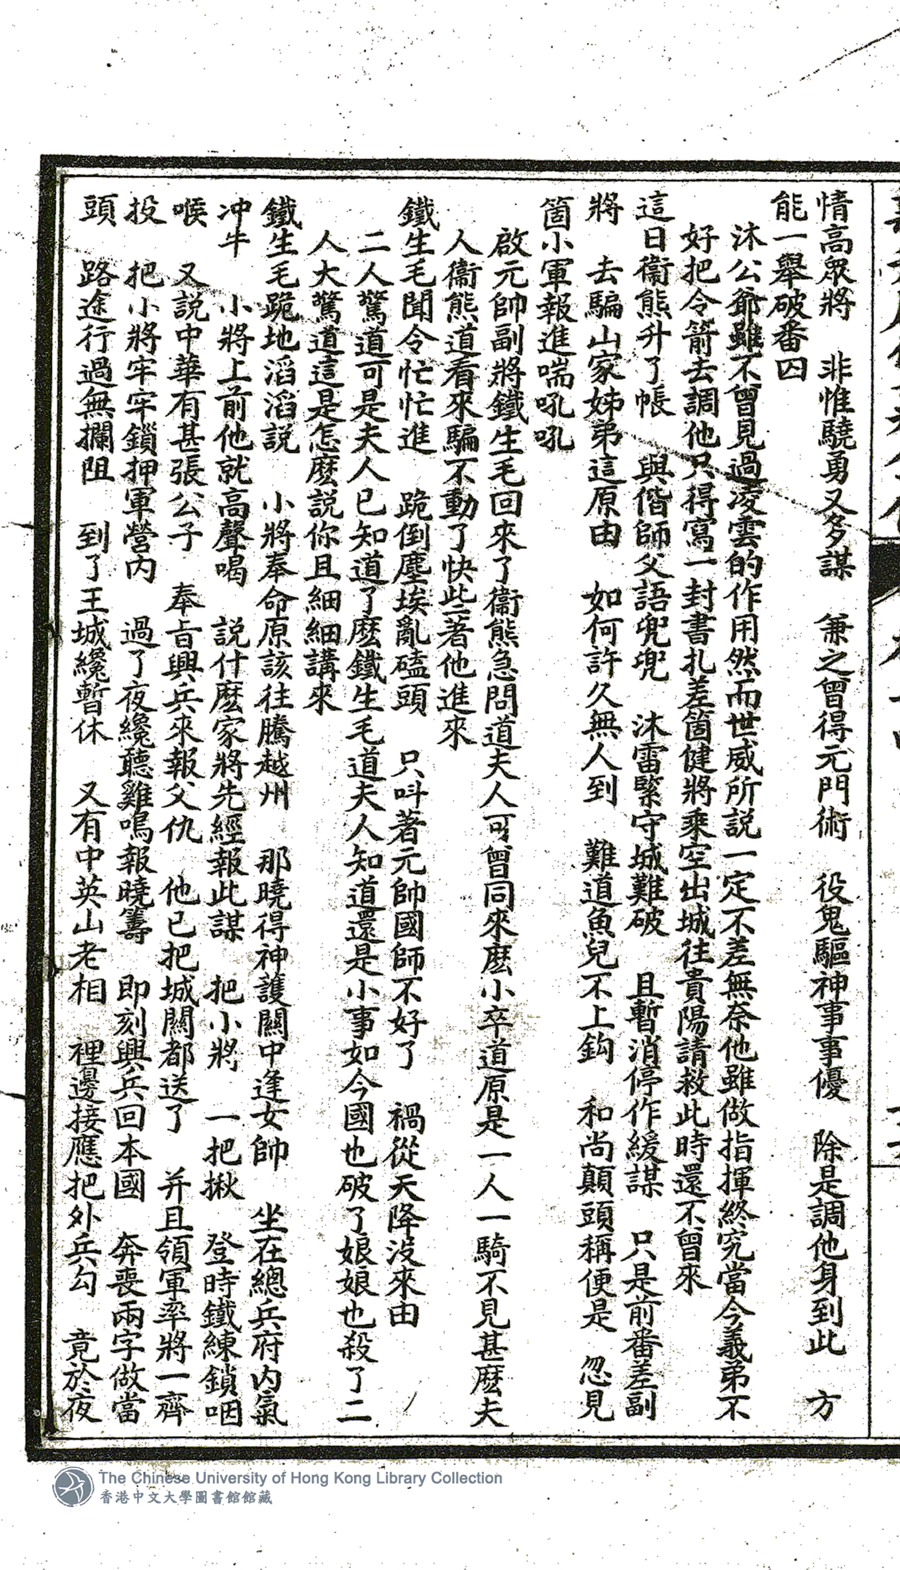 情高眾將　非惟驍勇又多謀　兼之曾得元門術　役鬼驅神事事優　除是調他身到此　方
能一舉破番囚
沐公爺雖不曾見過凌雲的作用然而世威所說一定不差無奈他雖做指揮終究當今義弟不
好把令箭去調他只得寫一封書扎差箇健將乘空出城往貴陽請救此時還不曾來
這日衞熊升了帳　與偕師父語兜兜　沐雷緊守城難破　且暫消停作緩謀　只是前番差副
將　去騙山家姊弟這原由　如何許久無人到　難道魚兒不上鈎　和尚顛頭稱便是　忽見
箇小軍報進喘吼吼
啟元帥副將鐵生毛回來了衞熊急問道夫人可曾同來麽小卒道原是一人一騎不見甚麽夫
人衞熊道看來騙不動了快些著他進來
鐵生毛聞令忙忙進　跪倒塵埃亂磕頭　只呌著元帥國師不好了　禍從天降沒來由
二人驚道可是夫人已知道了麽鐵生毛道夫人知道還是小事如今國也破了娘娘也殺了二
人大驚道這是怎麽說你且細細講來
鐵生毛跪地滔滔說　小將奉命原該往騰越州　那曉得神護關中逢女帥　坐在總兵府內氣
冲牛　小將上前他就高聲喝　說什麽家將先經報此謀　把小將　一把揪　登時鐵練鎖咽
喉　又說中華有甚張公子　奉旨興兵來報父仇　他已把城關都送了　并且領軍率將一齊
投　把小將牢牢鎖押軍營內　過了夜纔聽雞鳴報曉籌　即刻興兵回本國　奔喪兩字做當
頭　路途行過無攔阻　到了王城纔暫休　又有中英山老相　裡邊接應把外兵勾　竟於夜
The Chinese University of Hong Kong Library Collection
香港中文大學圖書館館藏